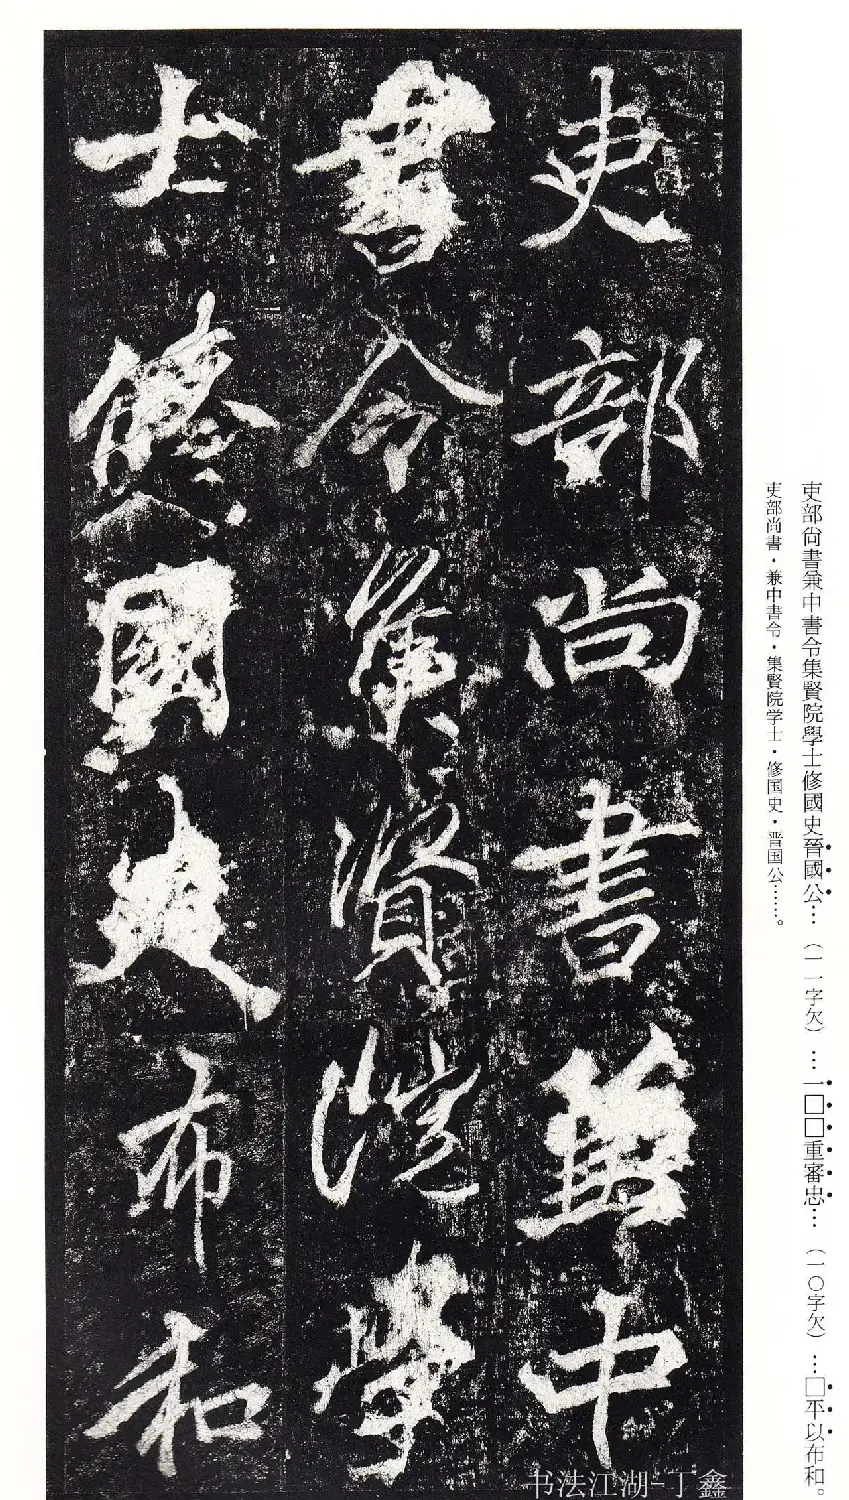 吏部尚書兼中
書令集賢院學
士修國史布和
吏部尙書兼中書令集賢院學士修國史晉國公…（一一字欠）…一□□重審忠…（一〇字欠）…□平以布和。
吏部尚書・兼中書令・集賢院学士・修国史・晋国公……。
书法江湖-丁鑫